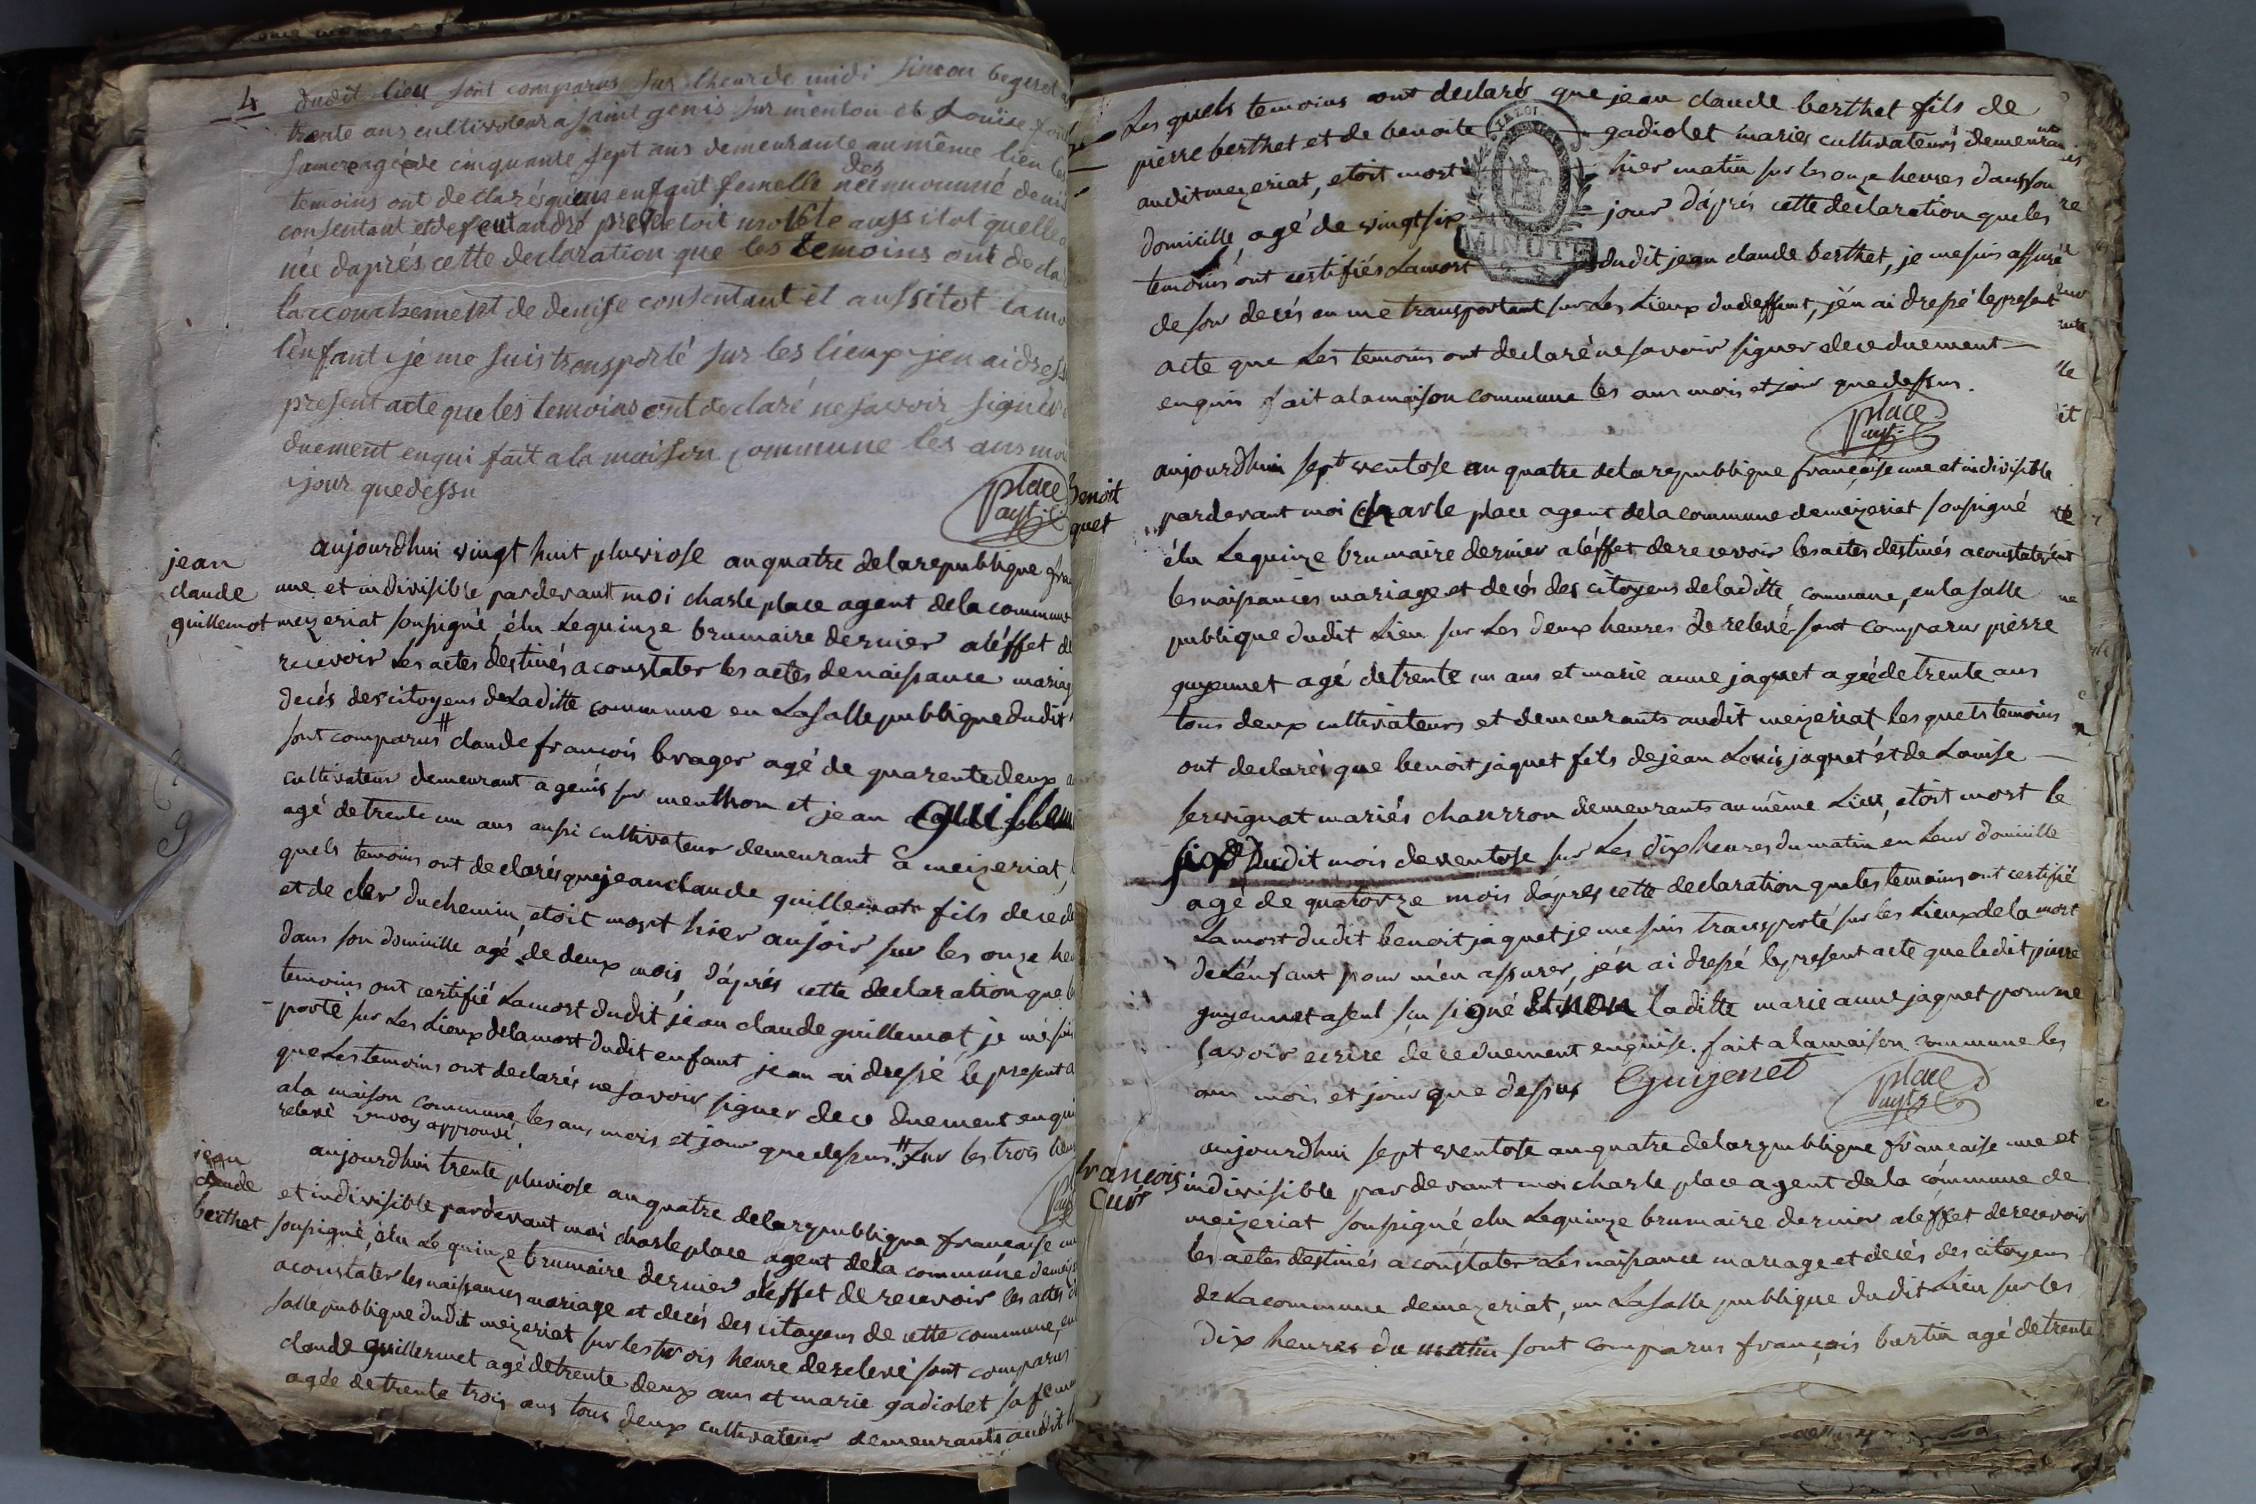 4
dudit lieu sont comparus sur lheur de midi simeon begerot
trente ans cultivateur a saint genis sur menton et Louise
sa mere agée de cinquante sept ans demeurante au même lieu les
temoins ont declarés qu'un enfant femelle née innommé denise
des
consentant et de feu andré pre etoit morte aussitot quelle
née daprés cette declaration que les temoins ont decla
l'accouchement de denise consentant et aussitot la mo
l'enfant je me suis transporté sur les lieux jen ai dressé
present acte que les temoins ont declaré ne savoir signer
duement enqui fait a la maison commune les ans moi
jour que dessu
place
agt.
jean
claude
guillemot
aujourdhui vingt huit pluviose an quatre de la republique fra
une et indivisible par devant moi charle place agent de la commune
mezeriat soussigné, élu le quinze brumaire dernier a l'éffet de
recevoir les actes destinés a constater les actes de naissance mariag
decés des citoyens de La ditte commune en La salle publique dudit
sont comparus # claude françois brager agé de quarente deux a
cultivateur demeurant a genis sur menthon et jean guillem
agé de trente un ans aussi cultivateur demeurant a meizeriat,
quels temoins ont declarés que jean claude guillemot fils de ce de
et de cler duchemin, etoit mort hier au soir sur les onze heu
dans son domicille agé de deux mois, d'aprés cette declaration que
temoins ont certifié La mort dudit jean claude guillemot, je mé suis
-porté sur Les Lieux de la mort dudit enfant jean ai dressé, le present a
que Les temoins ont declarés ne savoir signer de ce duement enqui
a la maison commune, les ans mois et jour que dessus. # Sur les trois heur
relevé renvoy approuvé.
jean
claude
berthet
aujourdhui trente pluviose an quatre de la republique francaise une
et indivisible pardevant moi charle place agent de la commune demez
soussigné, élu Le quinze brumaire dernier a l'effet de recevoir les actes d
a constater les naissances mariage et decés des citoyens de cette commune, en
salle publique dudit meizeriat sur les trois heure de relevé sont comparus
claude guillermet agé de trente deux ans et marie gadiolet sa femme
agée de trente trois ans tous deux cultivateur demeurants audit
Les quels temoins ont declarés que jean claude berthet fils de
pierre berthet et de benoite gadiolet mariés cultivateurs demeurant
audit mezeriat, etoit mort hier matin sur les onze heures dans son
domicille, agé de vingt six jour d'aprés cette declaration que les
temoins ont certifiés La mort dudit jean claude berthet, je me suis assuré
LA LOI
MINUTE
de son decés en me transportant sur Les Lieux du deffunt, j'en ai dressé le present
acte que Les temoins ont declaré ne savoir signer de ce duement
enquis fait a la maison commune les ans mois et jour que dessus.
place
agt.
benoit
jaquet
aujourdhui sept ventose an quatre de la republique française une et indivisible
pardevant moi charle place agent de la commune de mezeriat soussigné
élu Le quinze brumaire dernier a l'éffet de recevoir les actes destinés a constater
les naissances mariage et decés des citoyens de la ditte, commune, en la salle
publique dudit Lieu sur Les deux heures de relevé sont comparus pierre
guyennet agé de trente un ans et marie anne jaquet agée de trente ans
tous deux cultivateurs et demeurants audit meizeriat les quels temoins
ont declarés que benoit jaquet fils de jean Louis jaquet et de Louise
servignat mariés chanrron demeurants au même Lieu, etoit mort le
six dudit mois de ventose sur Les dix heures du matin en Leur domicille
agé de quatorze mois d'aprés cette declaration que les temoins ont certifié
La mort dudit benoit jaquet je me suis transporté sur les Lieux de la mort
de L'enfant pour m'en assurer, j'en ai dressé le present acte que le dit pierre
guyennet a seul su signé et non la ditte marie anne jaquet pour ne
savoir ecrire de ce duement enquise. fait a la maison commune les
ans mois et jour que dessus Guigenet
place
agt.
francois
Cur
aujourdhui sept ventose an quatre de la republique francaise une et
indivisible par devant moi charle place agent de la commune de
meizeriat soussigné, elu Le quinze brumaire dernier a l'effet de recevoir
les actes destinés a constater Les naissance mariage et decés des citoyens
de La commune de mezeriat, en La salle publique dudit Lieu sur les
dix heures du matin sont comparus françois bertin agé de trente